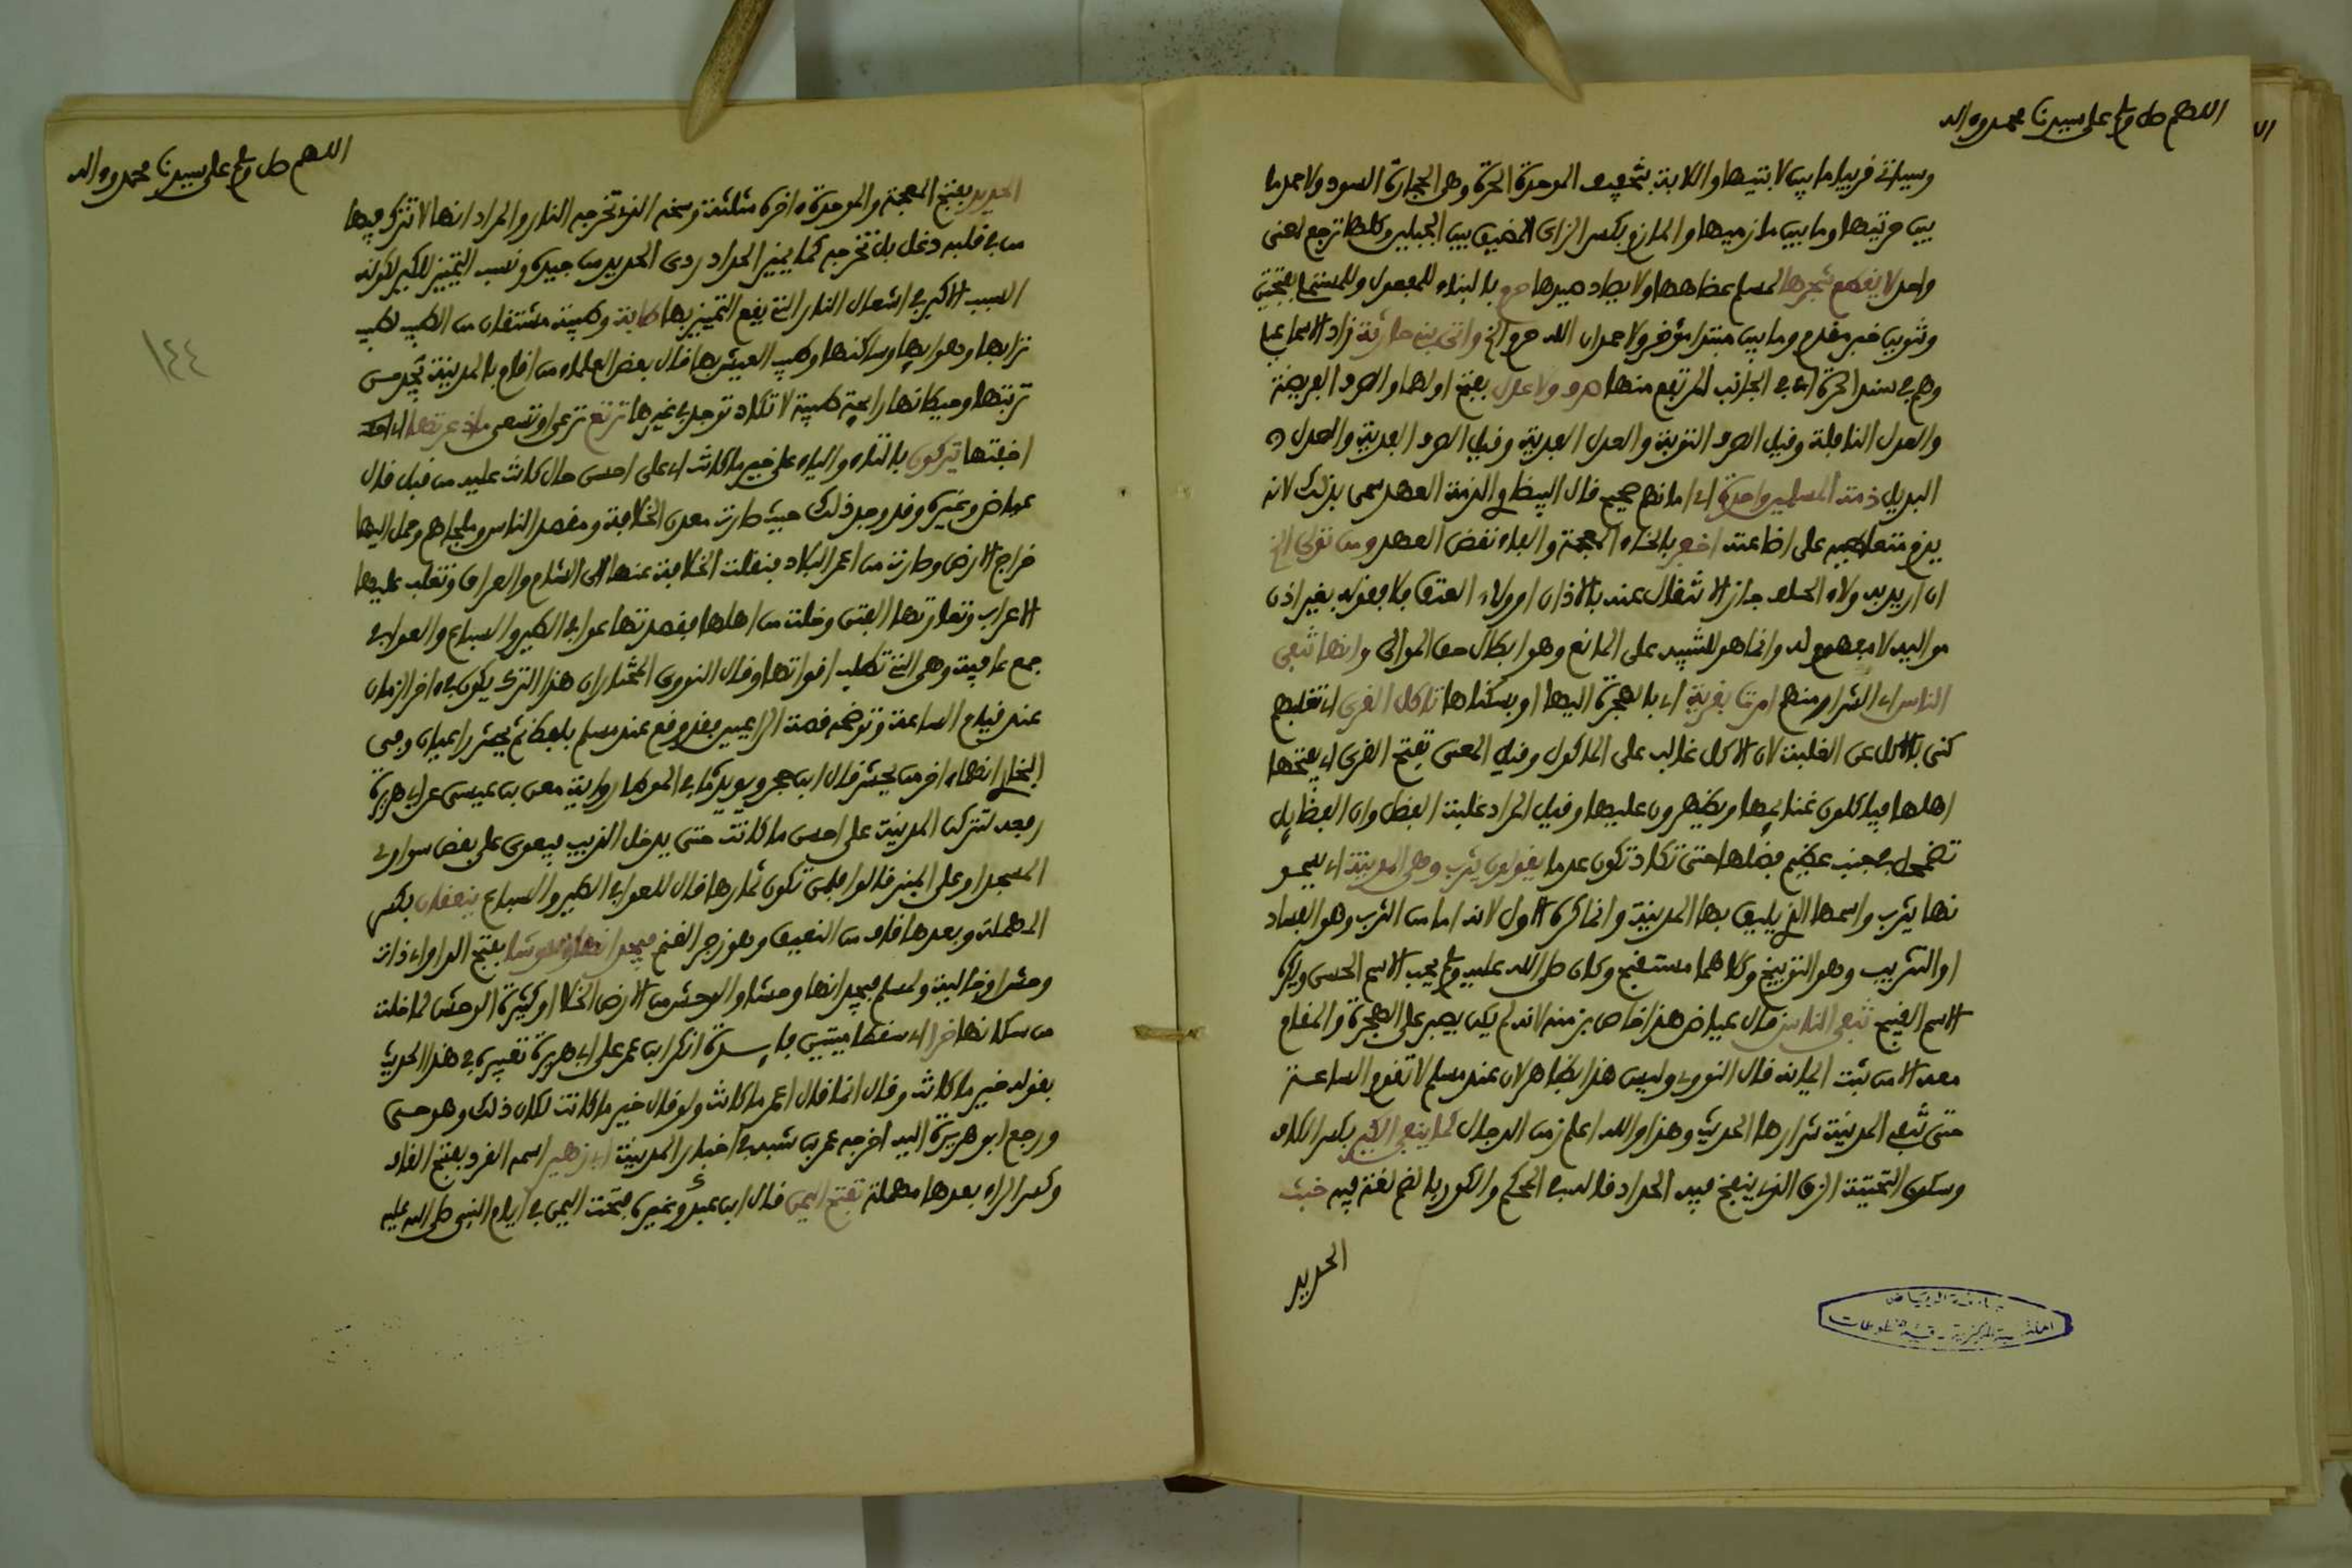 اللهم صل وسلم على سيدنا محمد وءاله
وسياتي قريبا ما بين لابتيها واللابة بتخفيف الموحدة الحرة وهي الحجارة السود ولاحمد ما
بين حرتيها وما بين مازميها والمازم بكسر الزاى المضيق بين الجبلين وكلها ترجع لمعنى
واحد لا يقطع شجرها لمسلم عضاهها ولا يصاد صيدها حرم بالبناء للمفعول وللمستملي بفتحتين
وتنوين خبر مقدم وما بين مبتدا مؤخر ولاحمد ان الله حرم الخ واتى بني حارثة زاد الاسماعيلي
وهم في سند الحرة اى في الجانب المرتفع منها صرف ولا عدل بفتح اولهما والصرف الفريضة
والعدل النافلة وقيل الصرف التوبة والعدل الفدية وقيل الصرف الفدية والعدل
البديل ذمة المسلمين واحدة اى امانهم صحيح قال البيضاوي الذمة العهد سمى بذلك لانه
يذم متعاطيه على اضاعته اخفر بالخاء المعجمة والفاء نقض العهد ومن تولى الخ
ان اريد به ولاء الحلف جاز الانتقال عنه بالاذن او ولاء العتق فلا فقوله بغير اذن
مواليه لا مفهوم له وانما هو للتنبيه على المانع وهو ابطال حق الموالى وانها تنفي
الناس اى الشرار منهم امرت بقرية اى بالهجرة اليها او بسكناها تاكل القرى اى تغلبهم
كنى بالاكل عن الغلبة لان الاكل غالب على الماكول وقيل المعنى تفتح القرى اى يفتحها
اهلها فياكلون غنايمها ويظهرون عليها وقيل المراد غلبة الفضل وان الفضايل
تضمحل في جنب عظيم فضلها حتى تكاد تكون عدما يقولون يثرب وهي المدينة اى يسمو
نها يثرب واسمها الذي يليق بها المدينة وانما كره الاول لانه اما من الثرب وهو الفساد
او التثريب وهو التوبيخ وكلاهما مستقبح وكان صلى الله عليه وسلم يحب الاسم الحسن ويكره
الاسم القبيح تنفي الناس قال عياض هذا خاص بزمنه لانه لم يكن يصبر على الهجرة والمقام
معه الا من ثبت ايمانه قال النووي وليس هذا بظاهر لان عند مسلم لا تقوم الساعة
حتى تنفي المدينة شرارها الحديث وهذا والله اعلم زمن الدجال كما ينفي الكير بكسر الكاف
وسكون التحتية الزق الذي ينفخ فيه الحداد قاله في المحكم والكور بالضم لغة فيه خبث
الحديد
جامعة الرياض
المكتبة المركزية - قسم المخطوطات
اللهم صل وسلم على سيدنا محمد وءاله
١٤٤
الحديد بفتح المعجمة والموحدة ءاخره مثلثة وسخه الذي تخرجه النار والمراد انها لا تترك فيها
من في قلبه دغل بل تخرجه كما يميز الحداد ردى الحديد من جيده ونسب التمييز للكير لكونه
السبب الاكبر في اشعال النار التي يقع التمييز بها طابة وطيبة مشتقان من الطيب لطيب
ترابها وهوايها وساكنها وطيب العيش بها قال بعض العلماء من اقام بالمدينة يجد من
تربتها وحيطانها رايحة طيبة لا تكاد توجد في غيرها ترتع ترعى او تسعى ما ذعرتها اى ما
اخفتها تتركون بالتاء والياء على خير ما كانت اى على احسن حال كانت عليه من قبل قال
عياض وغيره وقد وجد ذلك حيث صارت معدن الخلافة ومقصد الناس وملجاهم وحمل اليها
خراج الارض وصارت من اعمر البلاد فنقلت الخلافة عنها الى الشام والعراق وتغلب عليها
الاعراب وتعاورتها الفتن وخلت من اهلها فقصدتها عوافي الطير والسباع والعوافي
جمع عافية وهي التي تطلب اقواتها وقال النووي المختار ان هذا الترك يكون في ءاخر الزمان
عند قيام الساعة وتوضحه قصة الراعيين فقد وقع عند مسلم بلفظ ثم يحشر راعيان وفي
البخاري انهما ءاخر من يحشر قال ابن حجر ويويده ما في الموطا رواية معن بن عيسى عن ابي هريرة
رفعه لتتركن المدينة على احسن ما كانت حتى يدخل الذيب فيعوى على بعض سواري
المسجد او على المنبر قالوا فلمن تكون ثمارها قال للعوافي الطير والسباع ينعقان بكسر
المهملة وبعدها قاف من النعيق وهو زجر الغنم فيجدانها وحوشا بفتح الواو اى ذات
وحش او خالية ولمسلم فيجدانها وحشا والوحش من الارض الخلا او كثيرة الوحش لما خلت
من سكانها خرا اى سقطا ميتين فايـدة انكر ابن عمر على ابي هريرة تعبيره في هذا الحديث
بقوله خير ما كانت وقال انما قال اعمر ما كانت ولو قال خير ما كانت لكان ذلك وهو حي
ورجع ابو هريرة اليه اخرجه عمر بن شبه في اخبار المدينة ابي زهير اسمه القرد بفتح القاف
وكسر الراء بعدها مهملة تفتح اليمن قال ابن عبد البر وغيره فتحت اليمن في ايام النبي صلى الله عليه